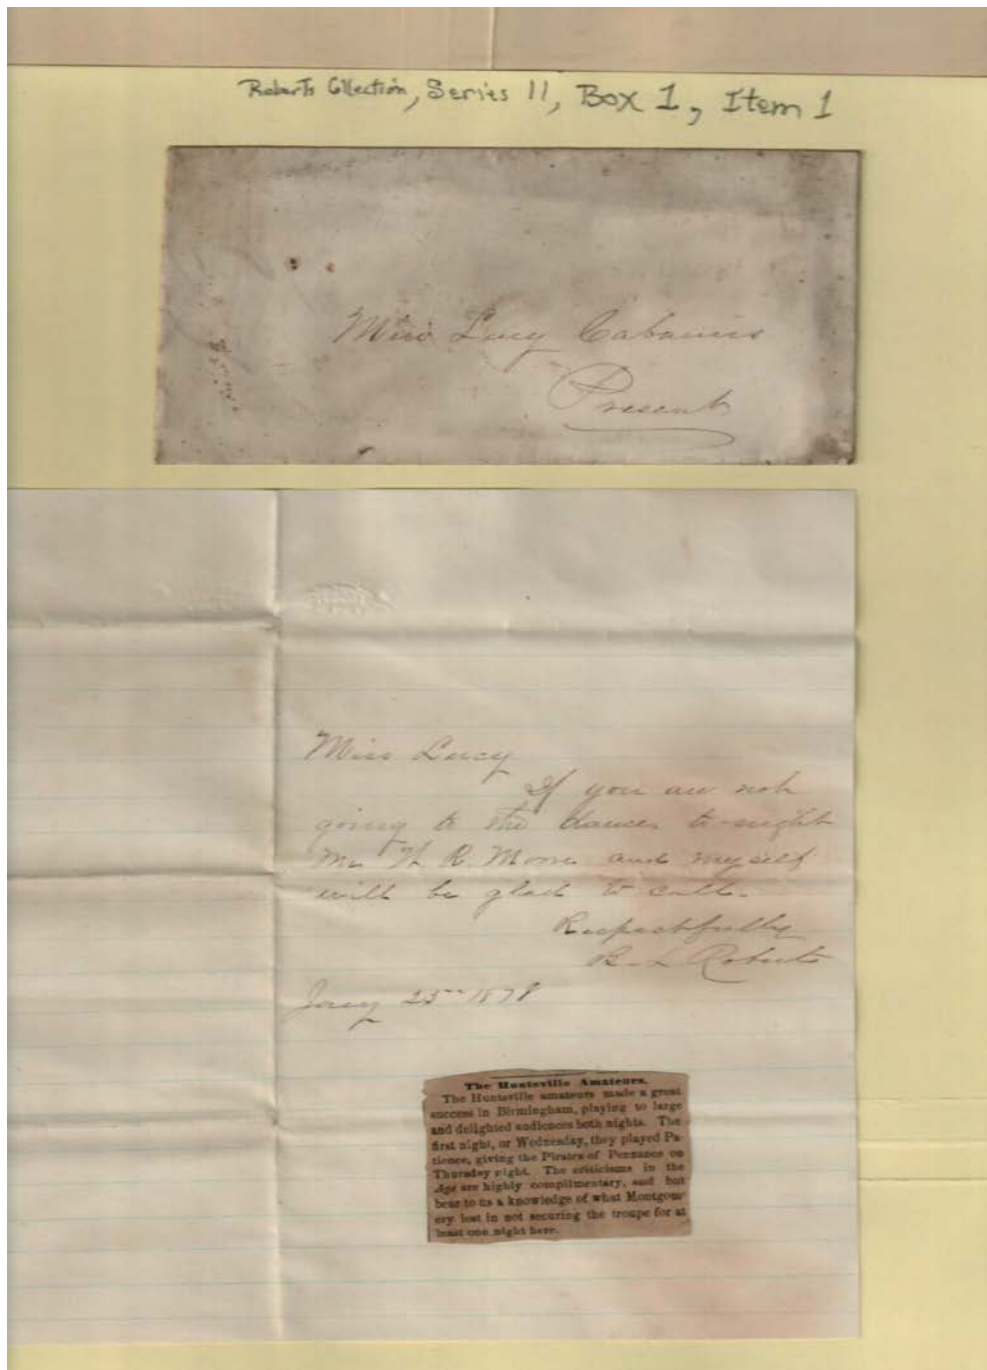 Roberts Collection, Series 11, Box 1, Item 1
Miss Lucy Cabaniss
Present
Miss Lucy
If you are not
going to the dance to-night
Mr W R Moore and myself
will be glad to call.
Respectfully
B. L Roberts
Jany 25 1878
The Huntsville Amateurs.
The Huntsville amateurs made a great
success in Birmingham, playing to large
and delighted audiences both nights. The
first night, or Wednesday, they played Pa-
tience, giving the Pirates of Penzance on
Thursday night. The criticisms in the
Age are highly complimentary, and but
bear to us a knowledge of what Montgom-
ery lost in not securing the troupe for at
least one night here.